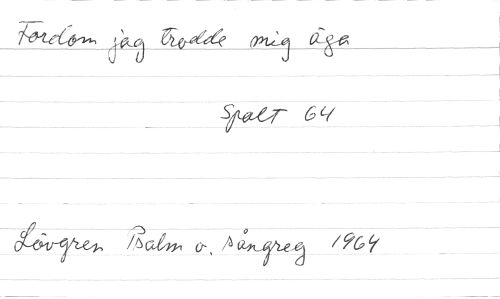 Fordom jag trodde mig äga
Spalt 64
Lövgren Psalm o. sångreg 1964